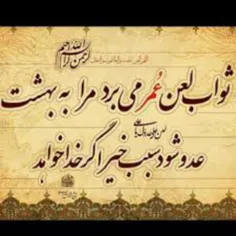 بسم الله الرحمن الرحیم
ثواب لعن عُمر می برد مرا به بهشت
عدو شود سبب خیر اگر خدا خواهد